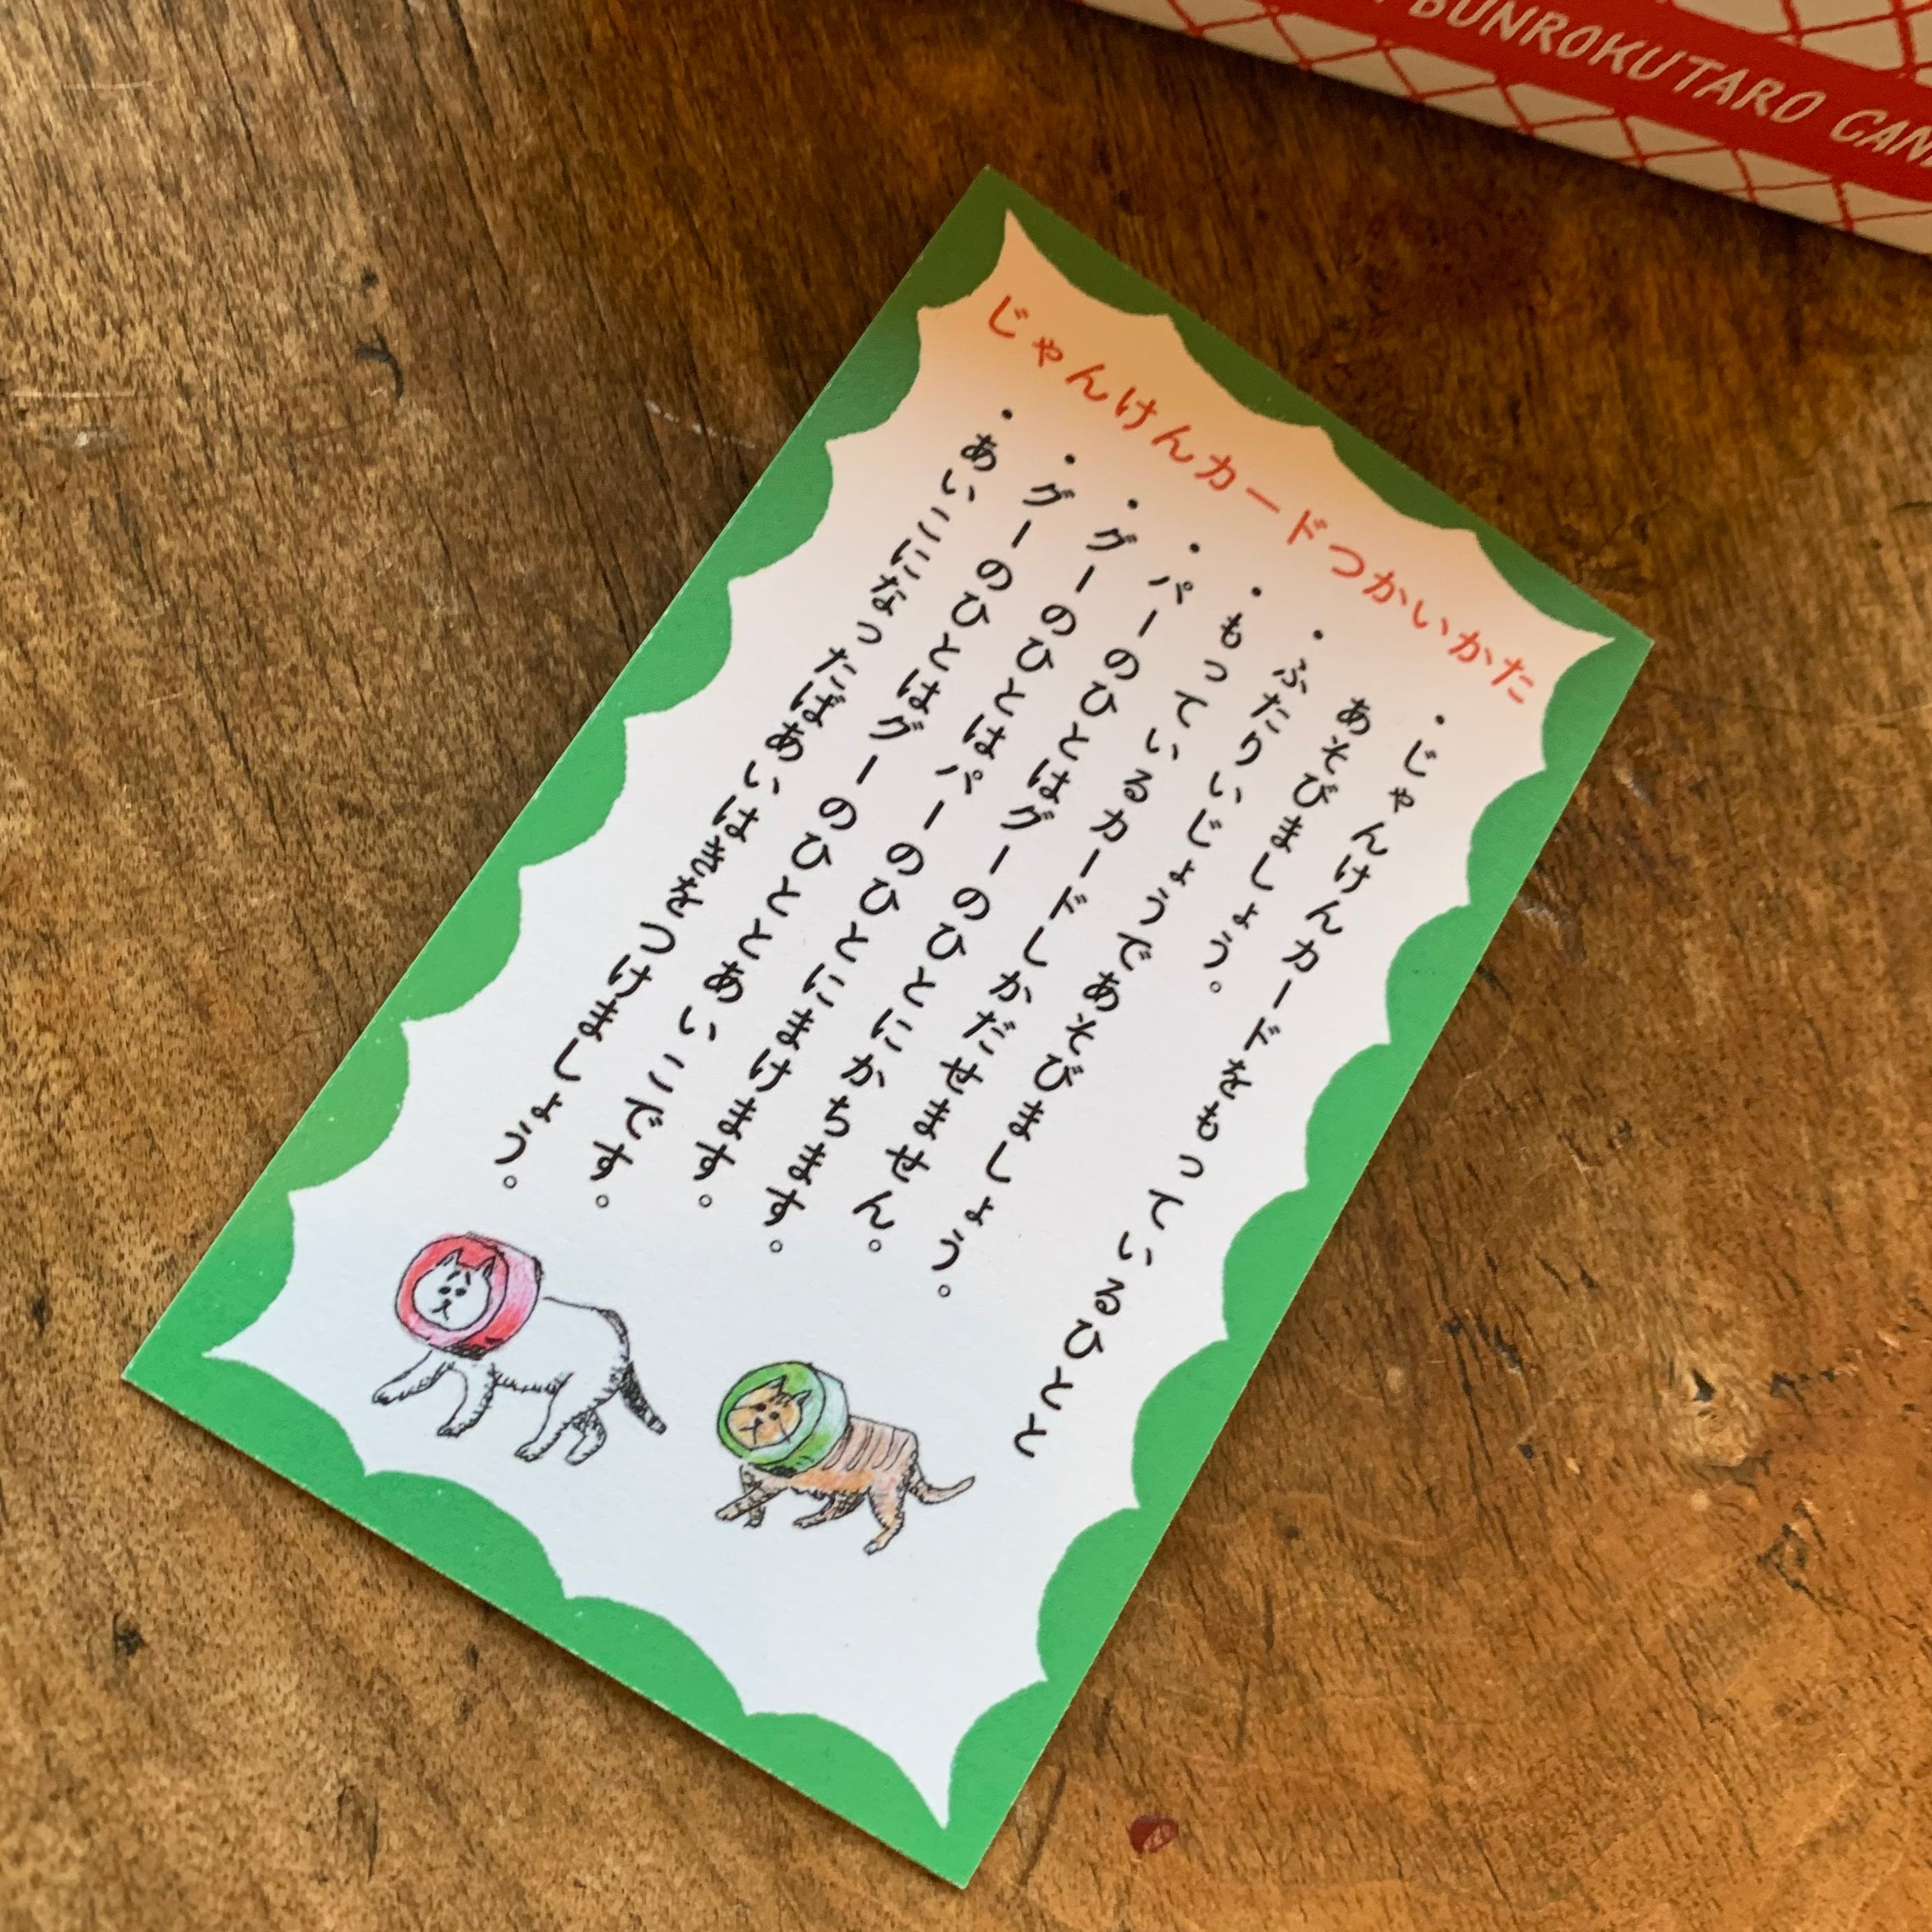 BUNROKUTARO
じゃんけんカードつかいかた
・じゃんけんカードをもっているひとと
あそびましょう。
・ふたりいじょうであそびましょう。
・もっているカードしかだせません。
・パーのひとはグーのひとにかちます。
・グーのひとはパーのひとにまけます。
・グーのひとはグーのひととあいこです。
・あいこになったばあいはきをつけましょう。